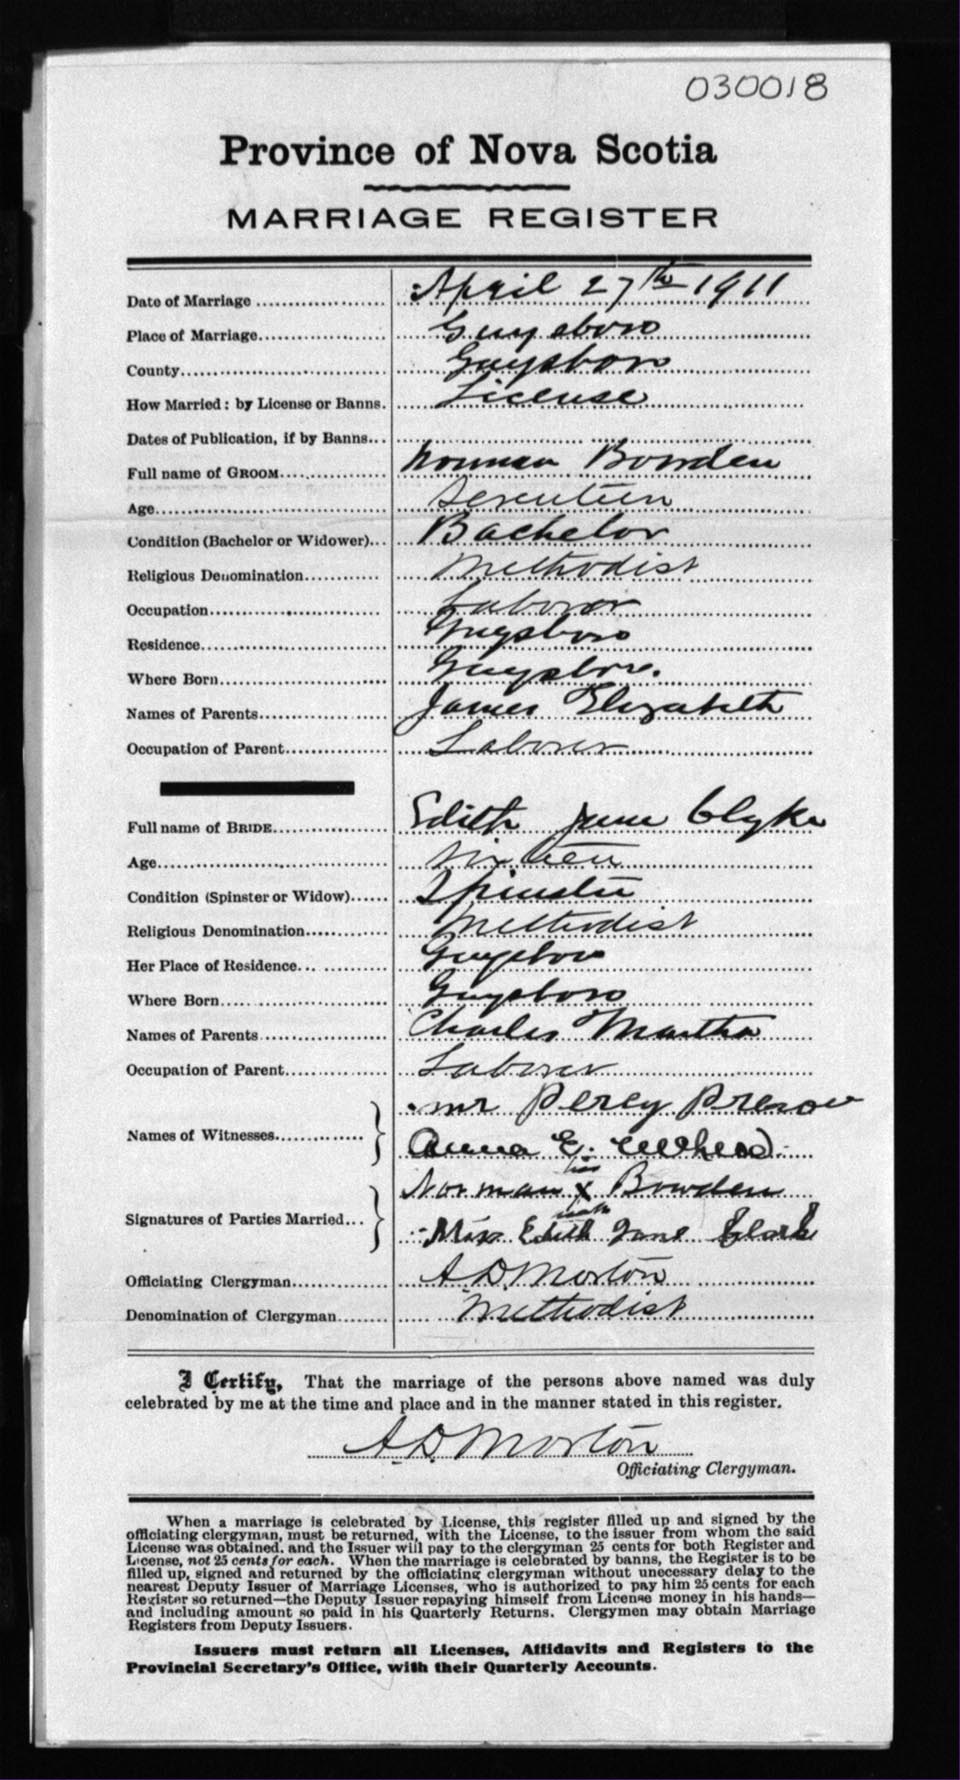 030018
Province of Nova Scotia
MARRIAGE REGISTER
Date of Marriage April 27th 1911
Place of Marriage Guysboro
County Guysboro
How Married: by License or Banns. License
Dates of Publication, if by Banns
Full name of GROOM Norman Bowden
Age Seventeen
Condition (Bachelor or Widower) Bachelor
Religious Denomination Methodist
Occupation Laborer
Residence Guysboro
Where Born Guysboro.
Names of Parents James Elizabeth
Occupation of Parent Laborer
Full name of BRIDE Edith Jane Clyke
Age Sixteen
Condition (Spinster or Widow) Spinster
Religious Denomination Methodist
Her Place of Residence Guysboro
Where Born Guysboro
Names of Parents Charles Martha
Occupation of Parent Laborer
Names of Witnesses mr Percy
Anna E.
Signatures of Parties Married Norman his x mark Bowden
Miss Edith Jane Clark
Officiating Clergyman A.D. Morton
Denomination of Clergyman Methodist
I Certify, That the marriage of the persons above named was duly
celebrated by me at the time and place and in the manner stated in this register.
A.D. Morton
Officiating Clergyman.
When a marriage is celebrated by License, this register filled up and signed by the
officiating clergyman, must be returned, with the License, to the issuer from whom the said
License was obtained, and the Issuer will pay to the clergyman 25 cents for both Register and
License, not 25 cents for each. When the marriage is celebrated by banns, the Register is to be
filled up, signed and returned by the officiating clergyman without unecessary delay to the
nearest Deputy Issuer of Marriage Licenses, who is authorized to pay him 25 cents for each
Register so returned—the Deputy Issuer repaying himself from License money in his hands—
and including amount so paid in his Quarterly Returns. Clergymen may obtain Marriage
Registers from Deputy Issuers.
Issuers must return all Licenses, Affidavits and Registers to the
Provincial Secretary's Office, with their Quarterly Accounts.